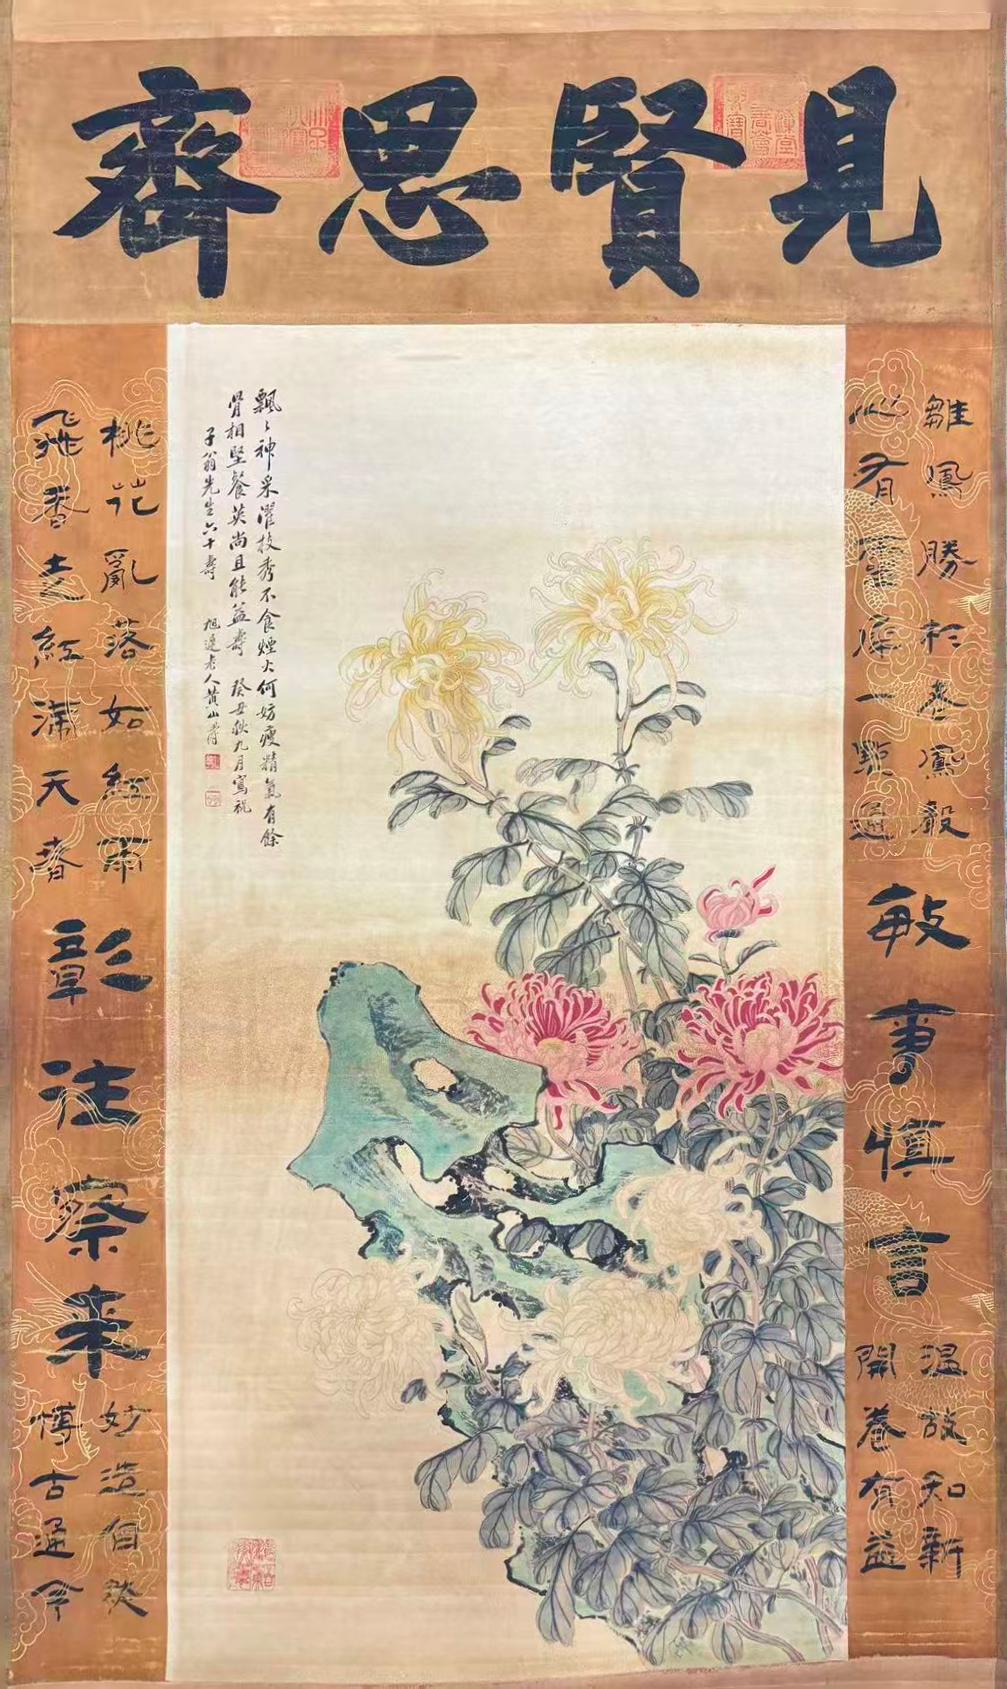 見賢思齊
雛鳳勝於老鳳聲
心有靈犀一點通
敏事慎言
温故知新
開卷有益
飄〻神采濯枝秀不食煙火何妨瘦精氣有餘
骨相堅餐英尚且能益壽 癸丑秋九月寫祝
子翁先生六十壽 旭遲老人黃山壽
桃花亂落如紅雨
飛香走紅滿天春
彰往察來
妙造自然
博古通今